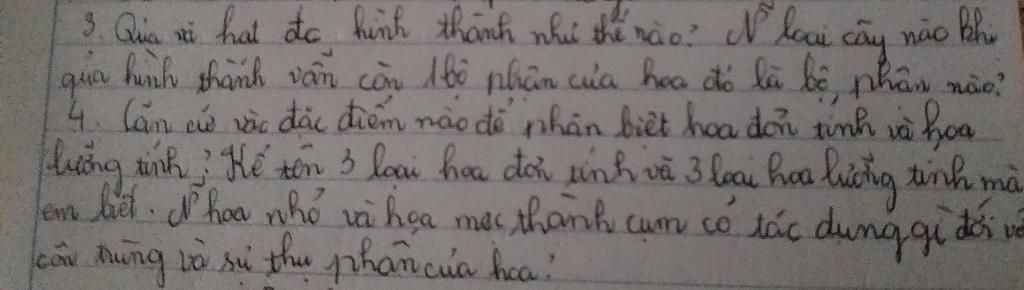 3. Qủa và hạt đc hình thành như thế nào? N~ loại cây nào khi
qủa hình thành vẫn còn 1 bộ phận của hoa đó là bộ phận nào?
4. Căn cứ vào đặc điểm nào để phân biệt hoa đơn tính và hoa
lưỡng tính? Kể tên 3 loại hoa đơn tính và 3 loại hoa lưỡng tính mà
em biết. N~ hoa nhỏ và hoa mọc thành cụm có tác dụng gì đối với
côn trùng và sự thụ phấn của hoa?